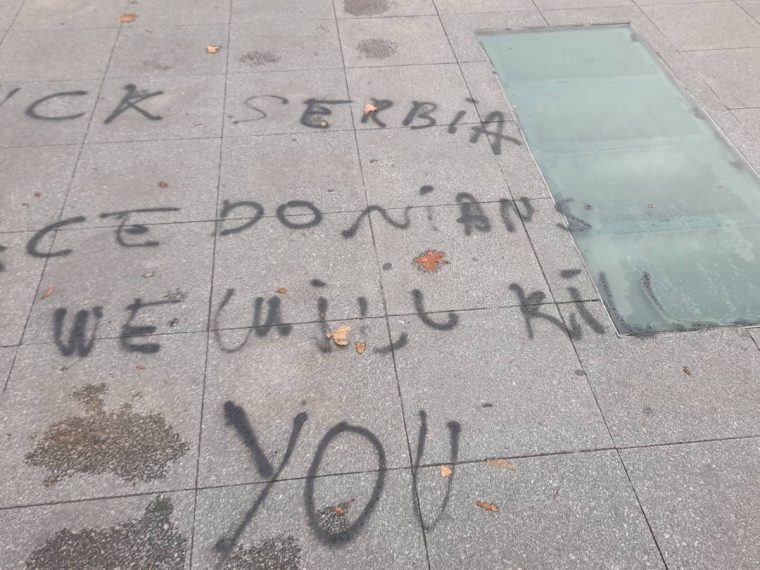 UCK SERBIA
CEDONIANS
WE WiLL Kill
YOU